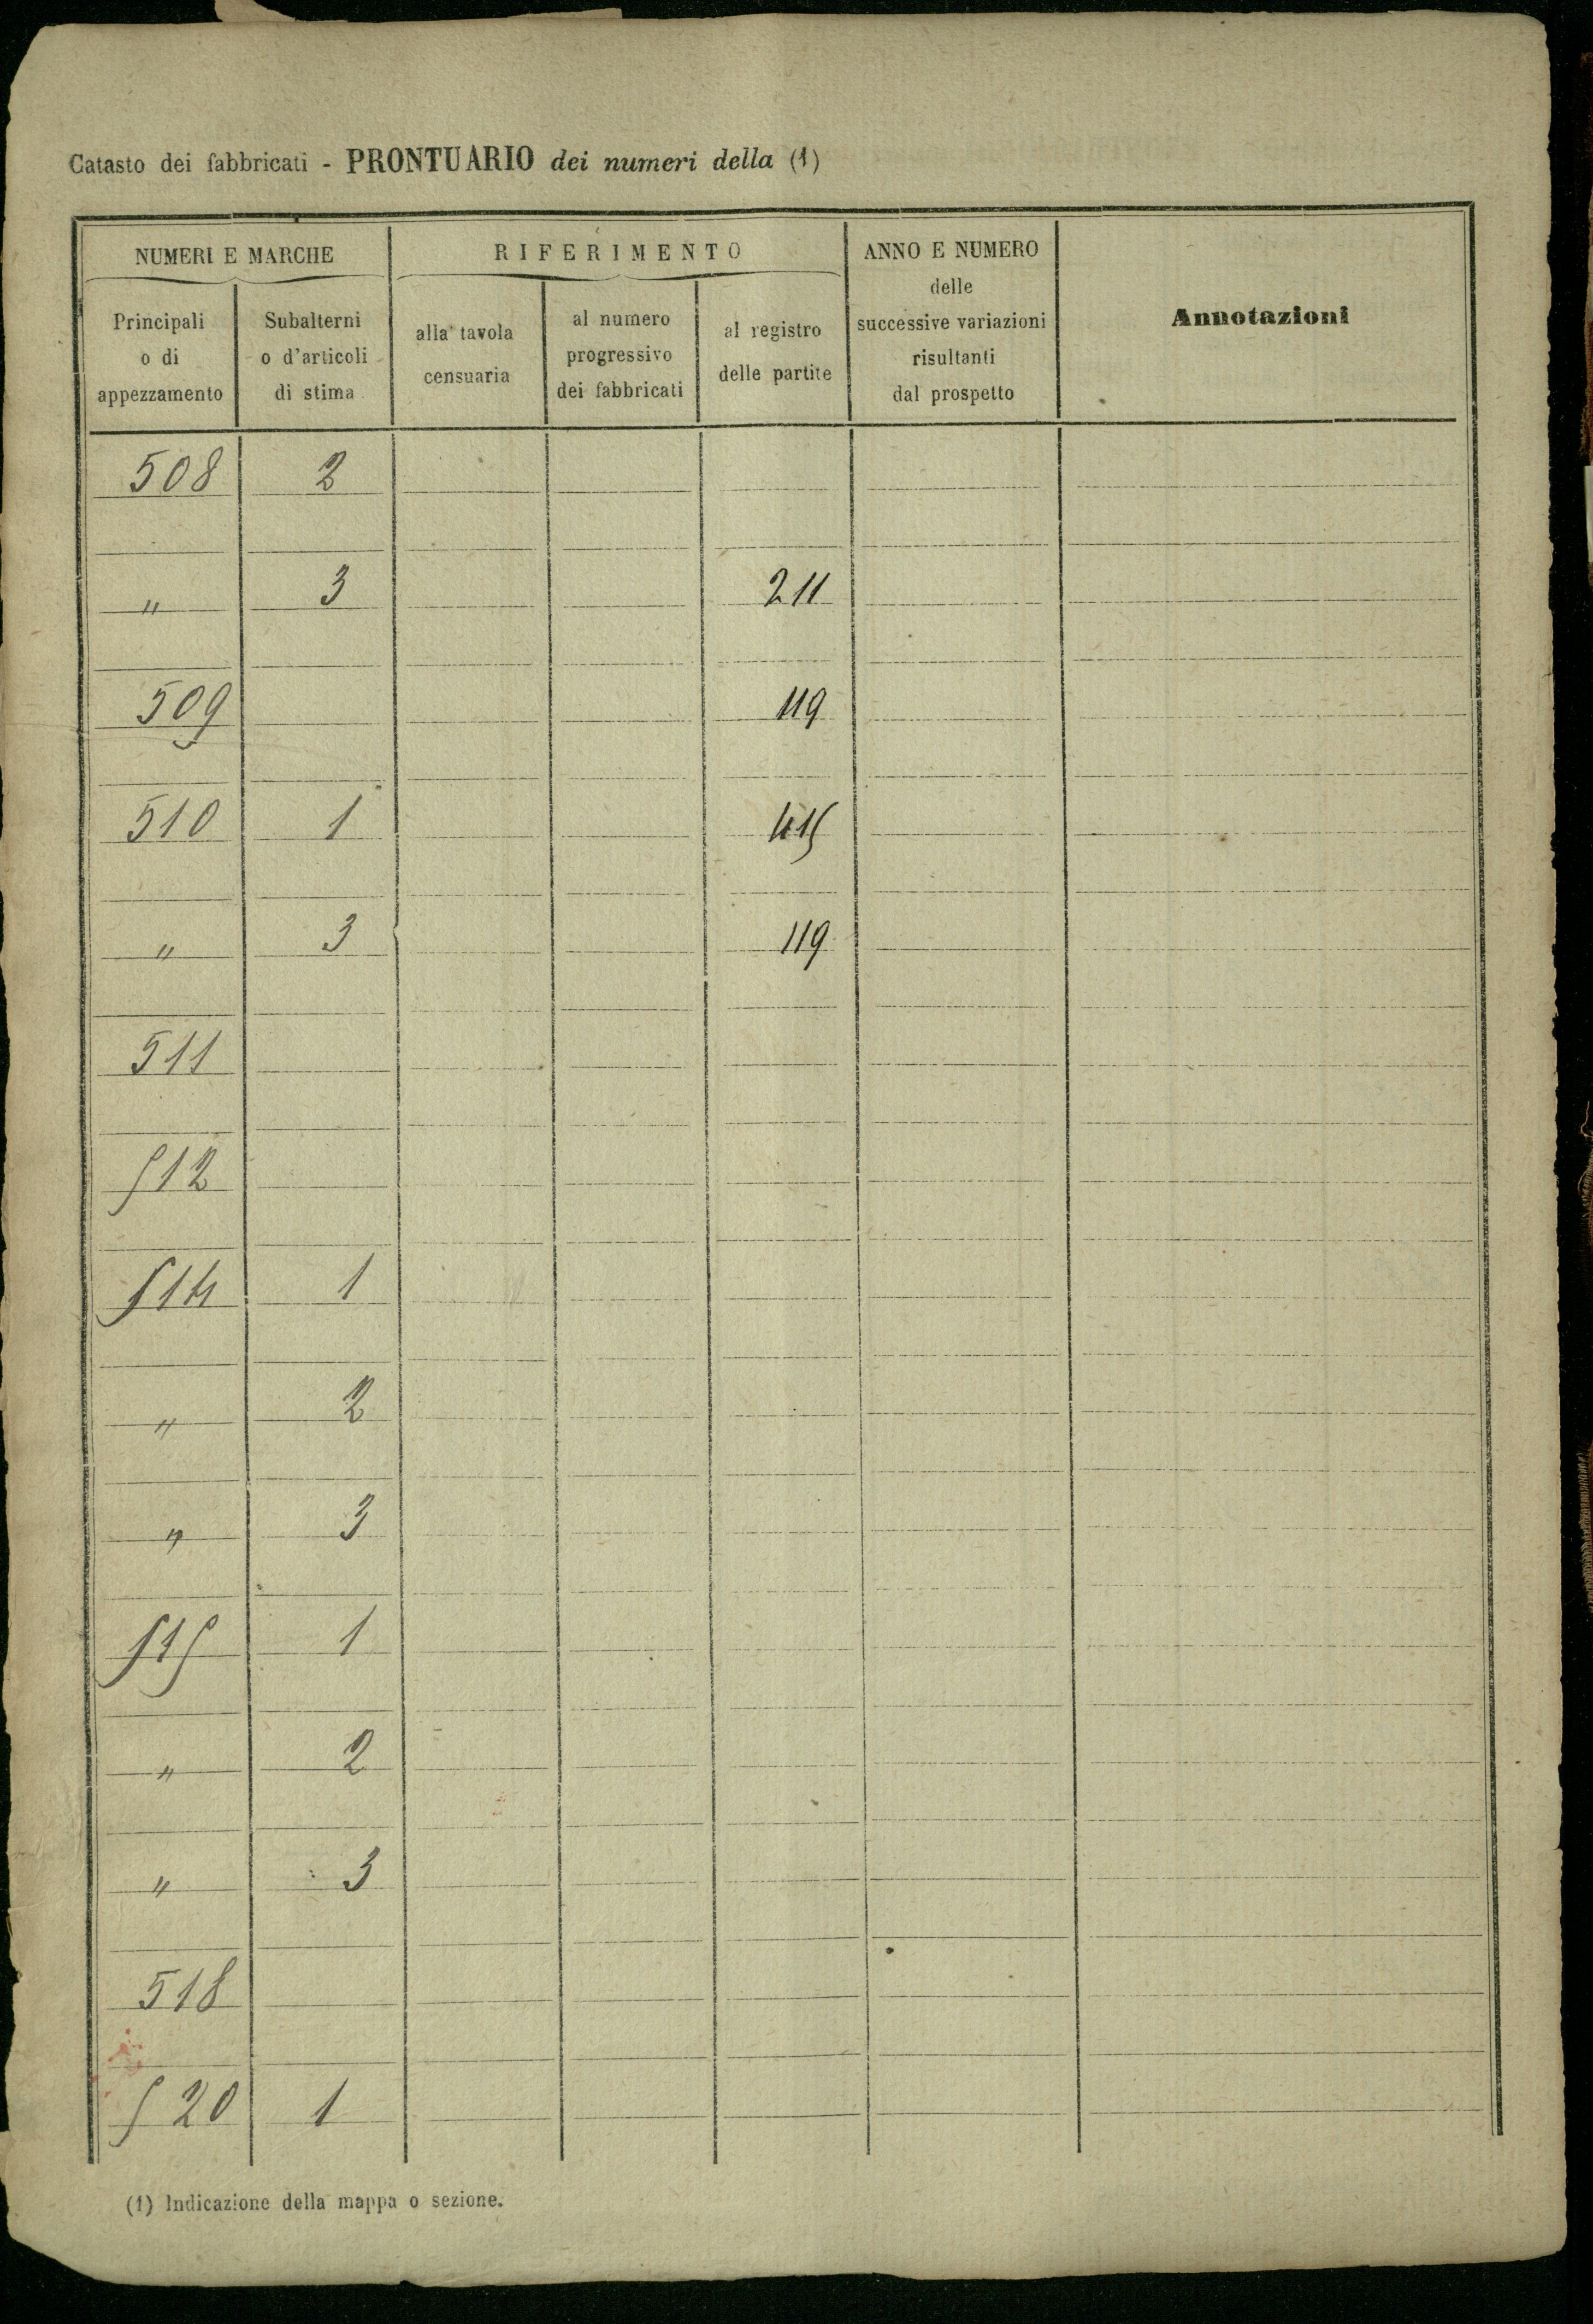 Catasto dei fabbricati - PRONTUARIO dei numeri della (1)
NUMERI E MARCHE
RIFERIMENTO
ANNO E NUMERO
delle
successive variazioni
risultanti
dal prospetto
Annotazioni
Principali
o di
appezzamento
Subalterni
o d'articoli
di stima
alla tavola
censuaria
al numero
progressivo
dei fabbricati
al registro
delle partite
508 2
" 3 211
509 119
510 1 415
" 3 119
511
512
514 1
" 2
" 3
515 1
" 2
" 3
518
520 1
(1) Indicazione della mappa o sezione.